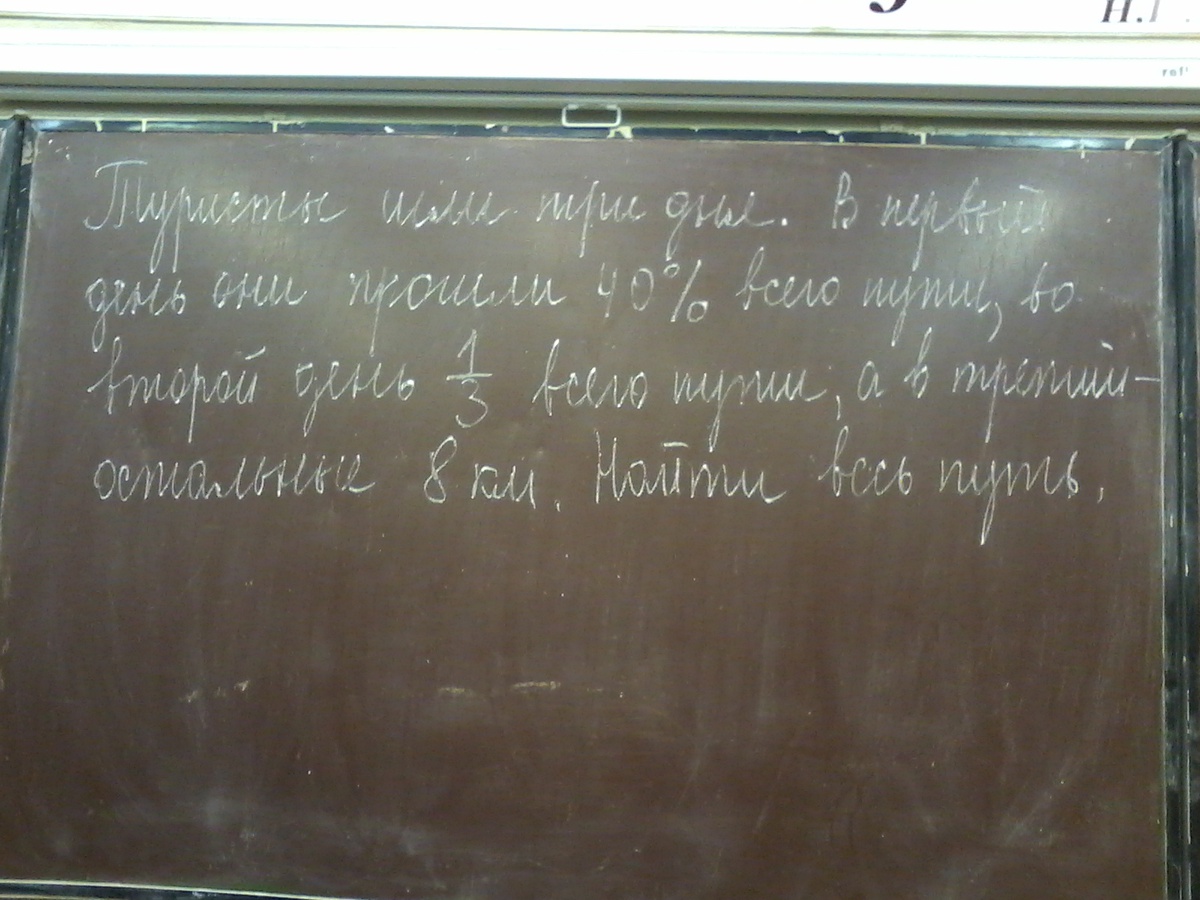 Н.Г
Туристы шли три дня. В первый
день они прошли 40% всего пути, во
второй день 1/3 всего пути, а в третий -
остальные 8 км. Найти весь путь.